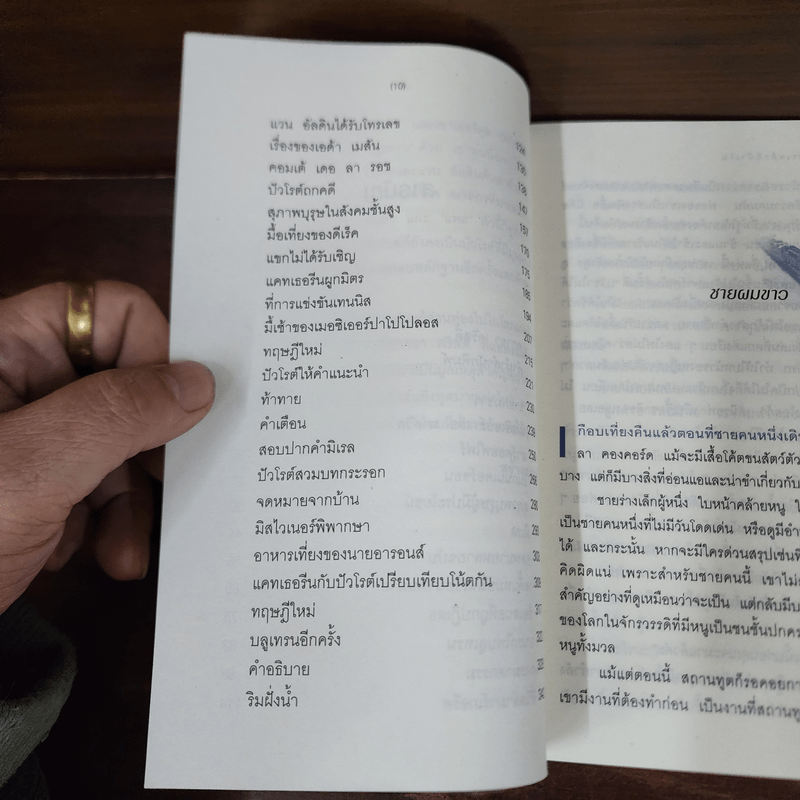 (10)
แวน อัลดินได้รับโทรเลข
เรื่องของเอด้า เมสัน 130
คอมเต้ เดอ ลา รอช 138
ปัวโรต์ถกคดี 147
สุภาพบุรุษในสังคมชั้นสูง 157
มื้อเที่ยงของดีเร็ค 170
แขกไม่ได้รับเชิญ 175
แคทเธอรีนผูกมิตร 185
ที่การแข่งขันเทนนิส 194
มื้เช้าของเมอซิเออร์ปาโปโปลอส 207
ทฤษฎีใหม่ 215
ปัวโรต์ให้คำแนะนำ 221
ท้าทาย 230
คำเตือน 239
สอบปากคำมิเรล 250
ปัวโรต์สวมบทกระรอก
จดหมายจากบ้าน
มิสไวเนอร์พิพากษา
อาหารเที่ยงของนายอารอนส์
แคทเธอรีนกับปัวโรต์เปรียบเทียบโน้ตกัน
ทฤษฎีใหม่
บลูเทรนอีกครั้ง
คำอธิบาย
ริมฝั่งน้ำ
ชายผมขาว
กือบเที่ยงคืนแล้วตอนที่ชายคนหนึ่งเดิน
ลา คองคอร์ด แม้จะมีเสื้อโค้ตขนสัตว์ตัว
บาง แต่ก็มีบางสิ่งที่อ่อนแอและน่าขำเกี่ยวกับ
ชายร่างเล็กผู้หนึ่ง ใบหน้าคล้ายหนู
เป็นชายคนหนึ่งที่ไม่มีวันโดดเด่น หรือดูมีอำ
ได้ และกระนั้น หากจะมีใครด่วนสรุปเช่น
คิดผิดแน่ เพราะสำหรับชายคนนี้ เขา
สำคัญอย่างที่ดูเหมือนว่าจะเป็น แต่กลับมี
ของโลกในจักรวรรดิที่มีหนูเป็นชนชั้นปกคร
หนูทั้งมวล
แม้แต่ตอนนี้ สถานทูตก็รอคอยกา
เขามีงานที่ต้องทำก่อน เป็นงานที่สถานทู